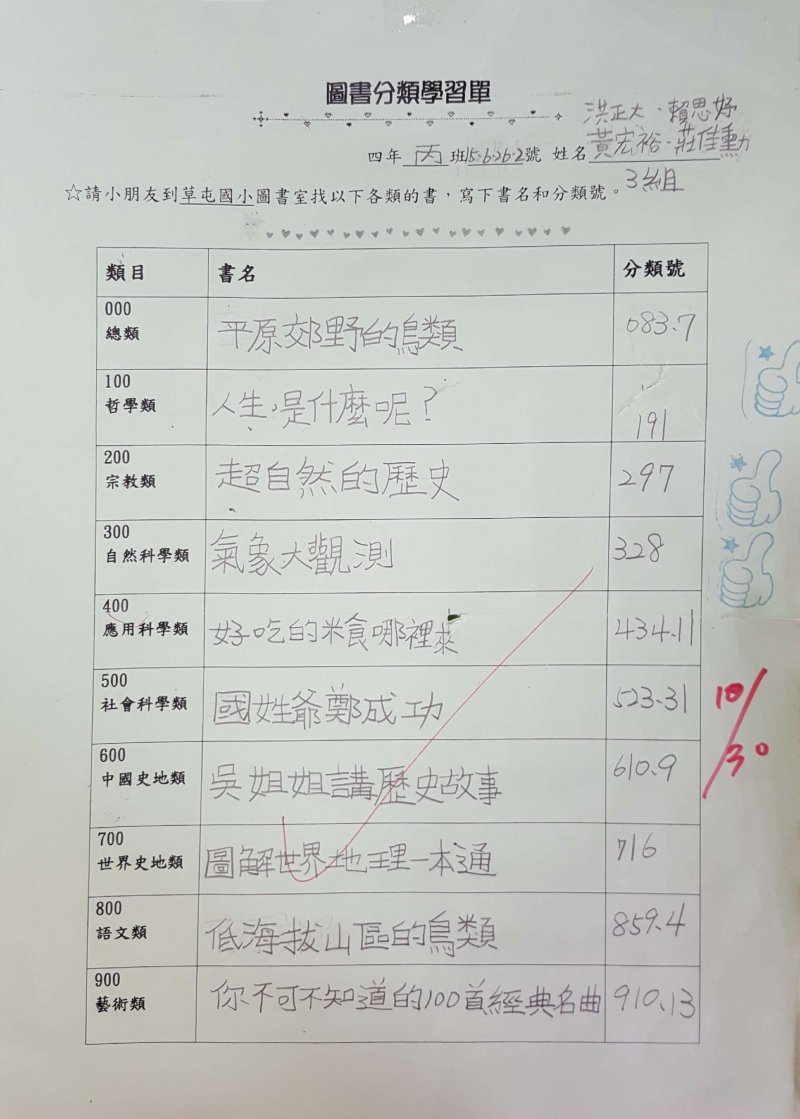 圖書分類學習單
洪正大、賴思妤
四年 丙 班15.6.26.2號 姓名 黃宏裕、莊佳勳
3組
☆請小朋友到草屯國小圖書室找以下各類的書，寫下書名和分類號。
類目 書名 分類號
000 總類 平原郊野的鳥類 083.7
100 哲學類 人生，是什麼呢？ 191
200 宗教類 超自然的歷史 297
300 自然科學類 氣象大觀測 328
400 應用科學類 好吃的米食哪裡來 434.11
500 社會科學類 國姓爺鄭成功 523.31
600 中國史地類 吳姐姐講歷史故事 610.9
700 世界史地類 圖解世界地理一本通 716
800 語文類 低海拔山區的鳥類 859.4
900 藝術類 你不可不知道的100首經典名曲 910.13
10/30